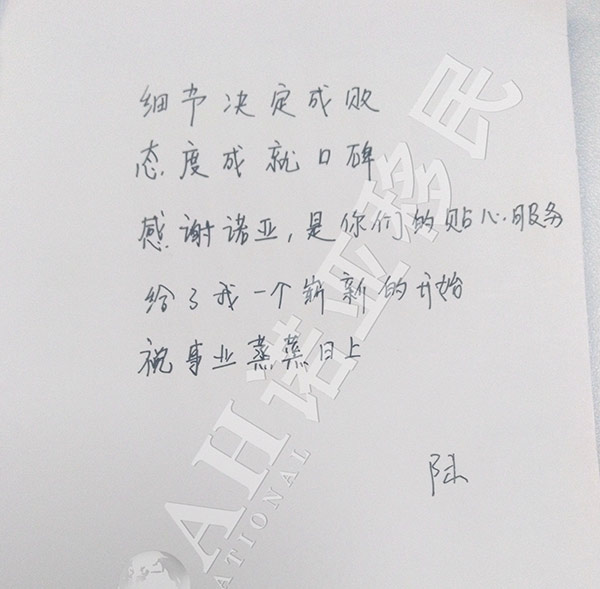 细节决定成败
态度成就口碑
感谢诺亚,是你们的贴心服务
给了我一个崭新的开始
祝事业蒸蒸日上
陆
诺亚移民
AH
ATIONAL